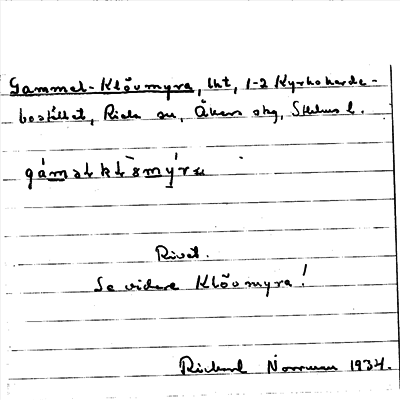 Gammal-Klövmyra, lht, 1-2 Kyrkoherde-
bostället, Riala sn, Åkers skg, Sthlms l.
gámalklö̀mýra
Rivet.
Se vidare Klövmyra!
Rickard Norrman 1934.